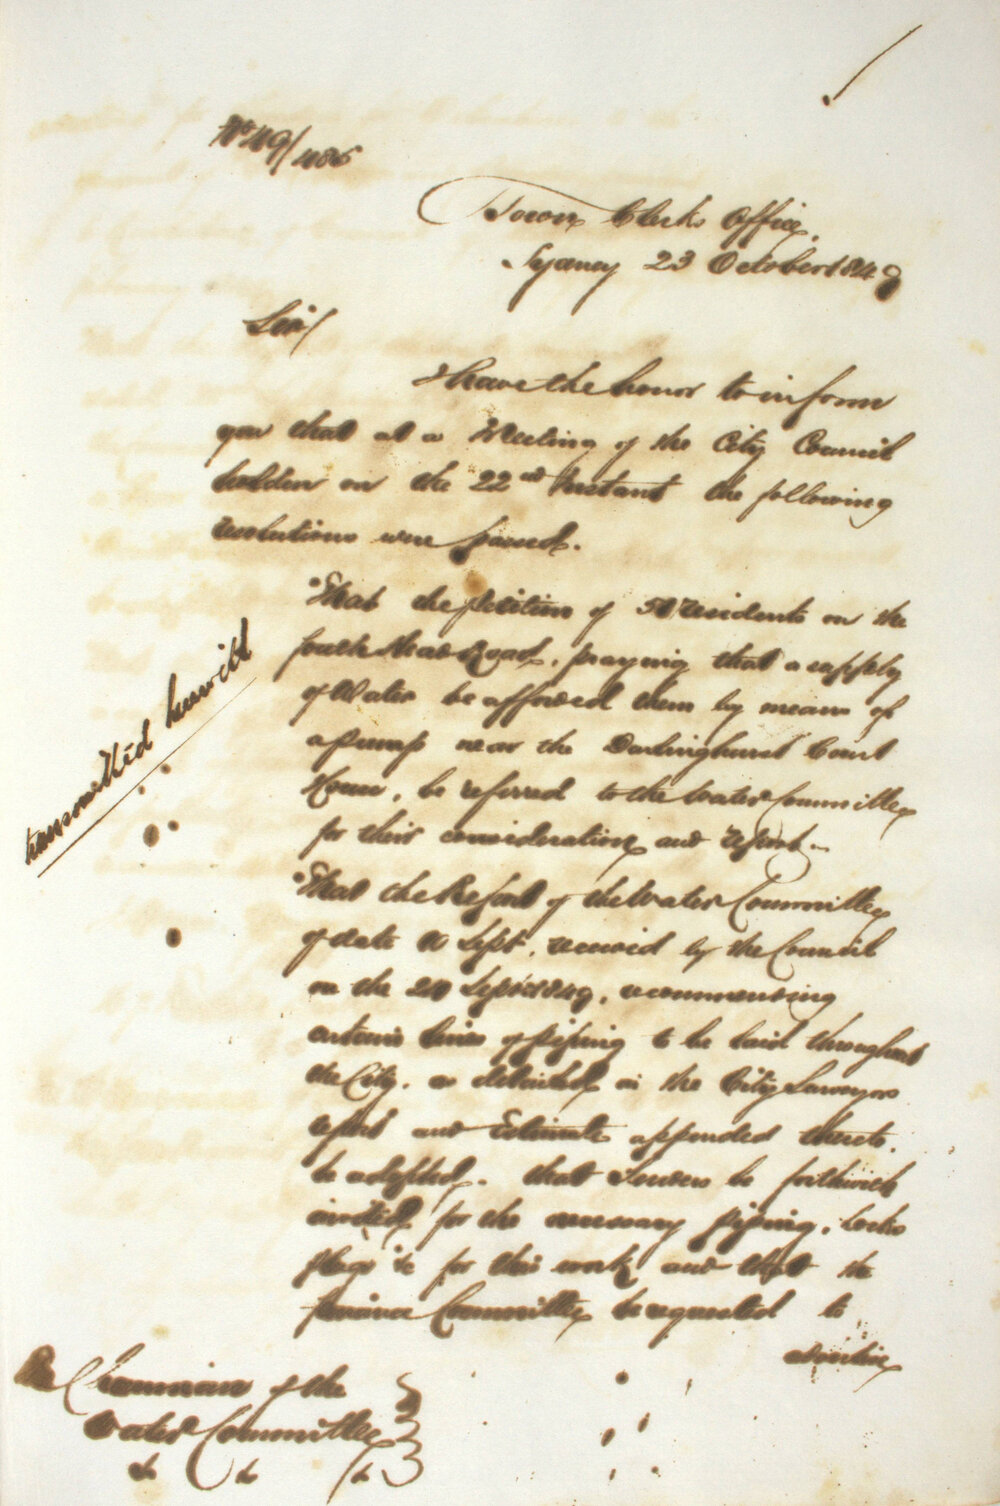 No 49/486
Town Clerks Office,
Sydney 23 October 1849
Sir/
I have the honor to inform
you that at a Meeting of the City Council
holden on the 22nd Instant the following
resolutions were passed.
"That the petition of 50 residents on the
South Head Road, praying that a supply
of Water be afforded them by means of
a pump near the Darlinghurst Court
House, be referred to the Water Committee
for their consideration and report.
transmitted herewith
"That the Report of the Water Committee
of date Sept, received by the Council
on the 24 Septr 1849, recommending
certain lines of piping to be laid throughout
the City, as detailed in the City Surveyors
report and Estimate appended thereto,
be adopted. that Tenders be forthwith
invited for the necessary piping, Cocks
plugs &c for this work and that the
Finance Committee be requested to
The Chairman of the
Water Committee
&c &c &c